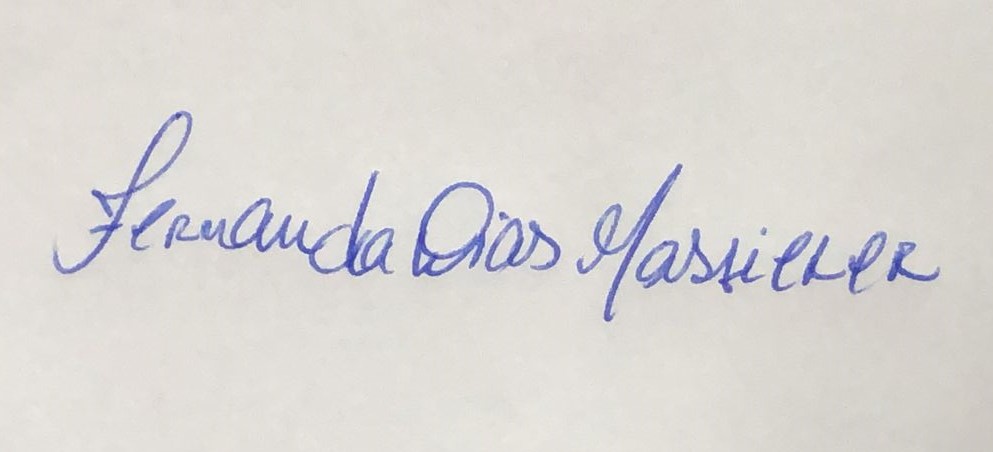 Fernanda Dias Massierer